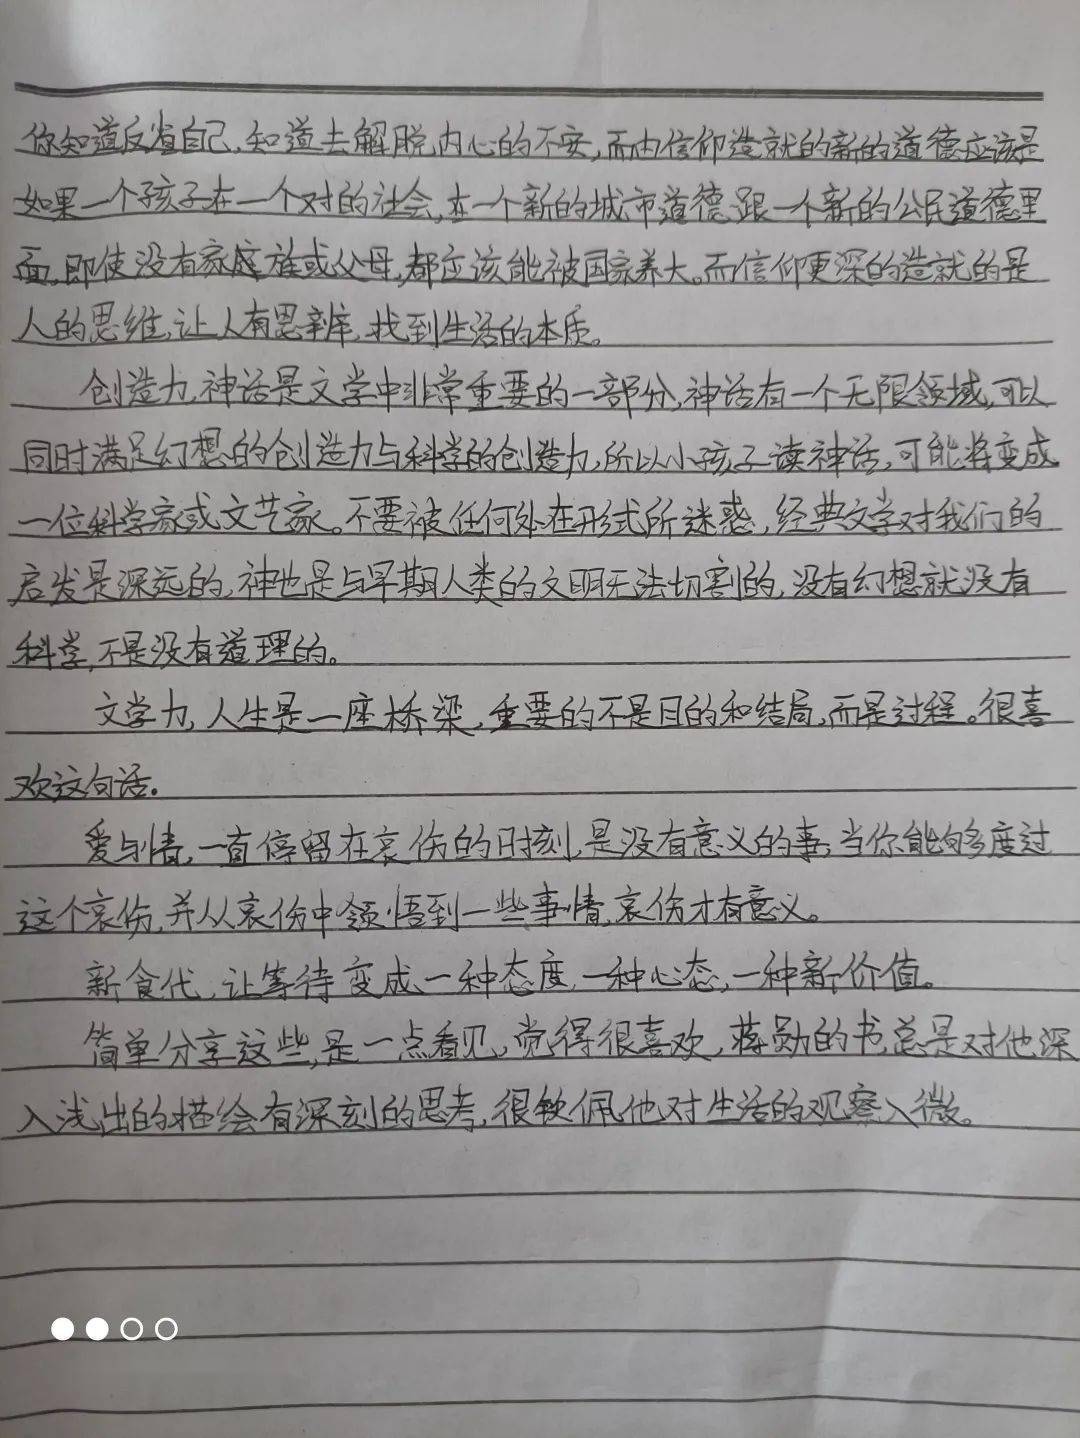 你知道反省自己，知道去解脱内心的不安，而由信仰造就的新的道德应该是
如果一个孩子在一个对的社会，在一个新的城市道德跟一个新的公民道德里
面，即使没有家庭族或父母，都应该能被国家养大。而信仰更深的造就的是
人的思维，让人有思辨，找到生活的本质。
创造力，神话是文学中非常重要的一部分，神话有一个无限领域，可以
同时满足幻想的创造力与科学的创造力，所以小孩子读神话，可能将变成
一位科学家或文艺家。不要被任何外在形式所迷惑，经典文学对我们的
启发是深远的，神也是与早期人类的文明无法切割的，没有幻想就没有
科学，不是没有道理的。
文学力，人生是一座桥梁，重要的不是目的和结局，而是过程。很喜
欢这句话。
爱与情，一直停留在哀伤的时刻，是没有意义的事，当你能够度过
这个哀伤，并从哀伤中领悟到一些事情，哀伤才有意义。
新食代，让等待变成一种态度，一种心态，一种新价值。
简单分享这些，是一点看见，觉得很喜欢，蒋勋的书总是对他深
入浅出的描绘有深刻的思考，很钦佩他对生活的观察入微。